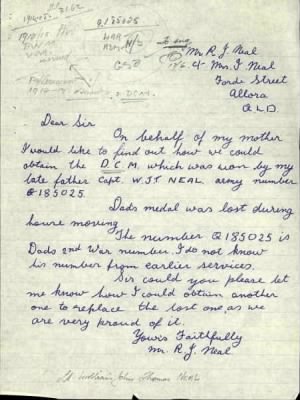 Q185025
WAR
D.C.M.
Mr R J Neal
& Mrs I Neal
Forde Street
Allora
QLD.
Dear Sir
On behalf of my mother
I would like to find out how we could
obtain the D.C.M. which was won by my
late father Capt. W.J.T NEAL army number
Q185025.
Dads medal was lost during
house moving
The number Q185025 is
Dads 2nd War number. I do not know
his number from earlier services.
Sir could you please let
me know how I could obtain another
one to replace the lost one as we
are very proud of it.
Yours Faithfully
Mr. R. J. Neal
Lt William John Thomas NEAL